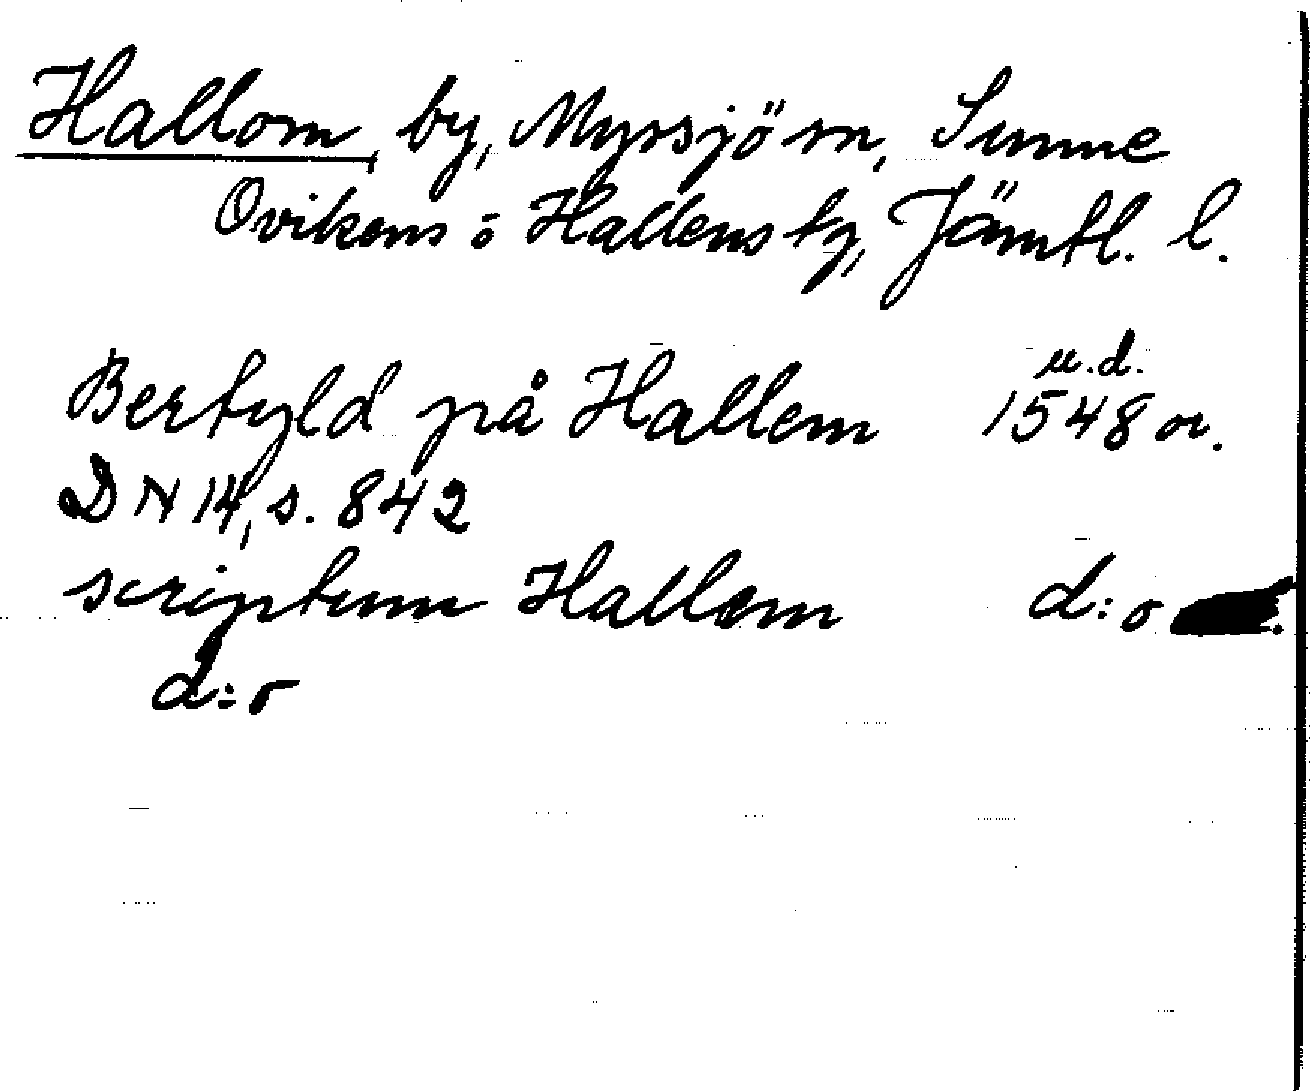 Hallom, by, Myssjö sn, Sunne
Ovikens o Hallens tg, Jämtl. l.
Bertyld på Hallem u.d. 1548 or.
DN 14, s. 842
scriptum Hallem d:o
d:o